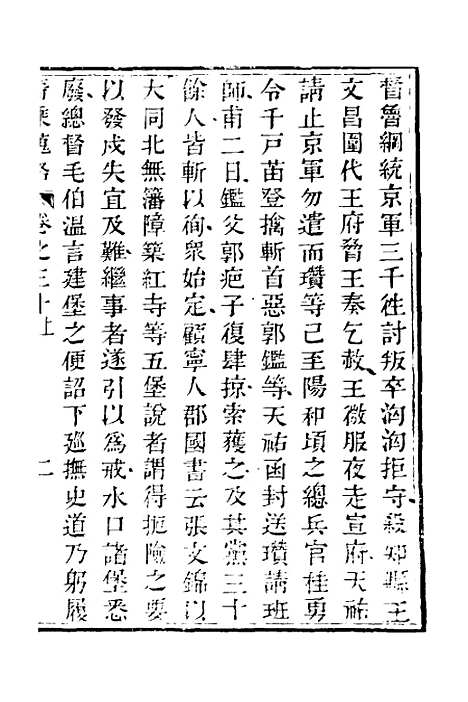 督魯綱統京軍三千徃討叛卒洶洶拒守殺知縣王
文昌圍代王府脅王奏乞赦王微服夜走宣府天祐
請止京軍勿遣而瓚等已至陽和頃之總兵官桂勇
令千戸苗登擒斬首惡郭鑑等天祐函封送瓚請班
師甫二日鑑父郭疤子復肆掠索獲之及其黨三十
餘人皆斬以徇衆始定顧寧人郡國書云張文錦以
大同北無籓障築紅寺等五堡說者謂得扼險之要
以發戍失宜及難繼事者遂引以爲戒水口諸堡悉
廢總督毛伯溫言建堡之便詔下廵撫史道乃躬履
晉乘蒐略 卷之三十上 二